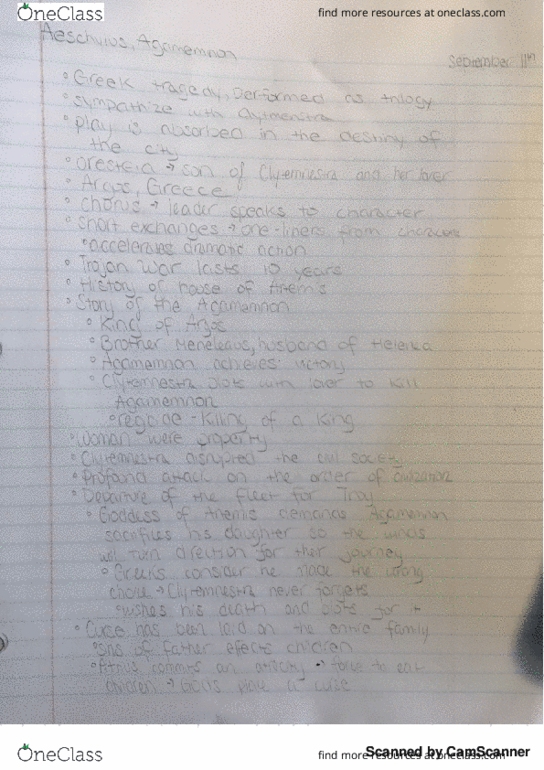 OneClass
find more resources at oneclass.com
Aeschulus, Agamemnon
September 11th
Greek tragedy, performed as trilogy
sympathize with Clytmenstra
play is absorbed in the destiny of
the city
Oresteia → son of Clytemnestra and her lover
Argos, Greece
Chorus → leader speaks to character
short exchanges → one-liners from character
accelerates dramatic action
Trojan War lasts 10 years
History of house of Atremis
Story of the Agamemnon
King of Argos
Brother Meneleaus, husband of Helenka
Agamemnon achieves victory
Clytemnestra plots with lover to kill
Agamemnon
regicide - Killing of a King
Woman were property
Clytemnestra disrupted the civil society
Profound attack on the order of civilization
Departure of the fleet for Troy
Goddess of Artemis demands Agamemnon
sacrifices his daughter so the winds
will turn direction for their journey
Greeks consider he made the wrong
choice → Clytemnestra never forgets
wishes his death and plots for it
Curse has been laid on the entire family
sins of father effects children
commits an atrocity → force to eat
children → Gods place a curse
OneClass
find more resources at oneclass.com
Scanned by CamScanner